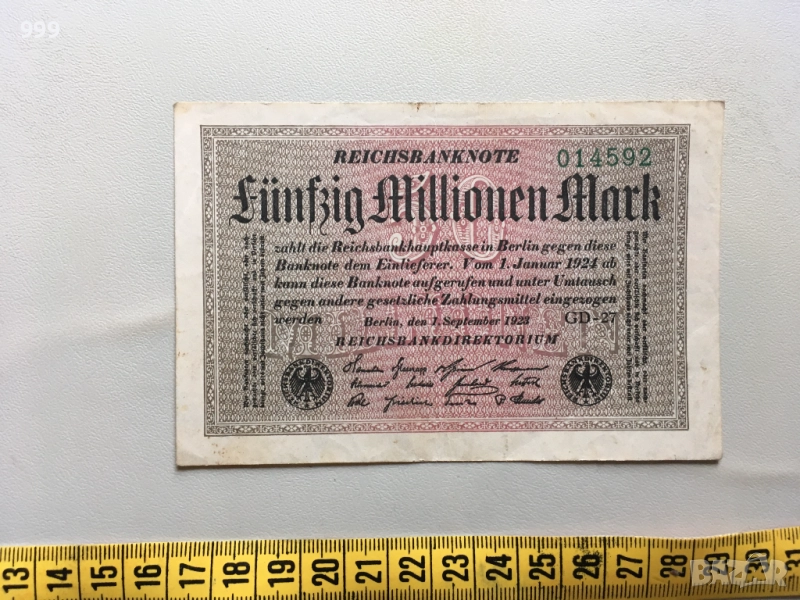 999
REICHSBANKNOTE 014592
Fünfzig Millionen Mark
50
zahlt die Reichsbankhauptkasse in Berlin gegen diese
Banknote dem Einlieferer. Vom 1. Januar 1924 ab
kann diese Banknote aufgerufen und unter Umtausch
gegen andere gesetzliche Zahlungsmittel eingezogen
werden Berlin, den 1. September 1923 GD-27
REICHSBANKDIREKTORIUM
13 14 15 16 17 18 19 20 21 22 23 24 25 26 27 28 29 30 31
BAZAR